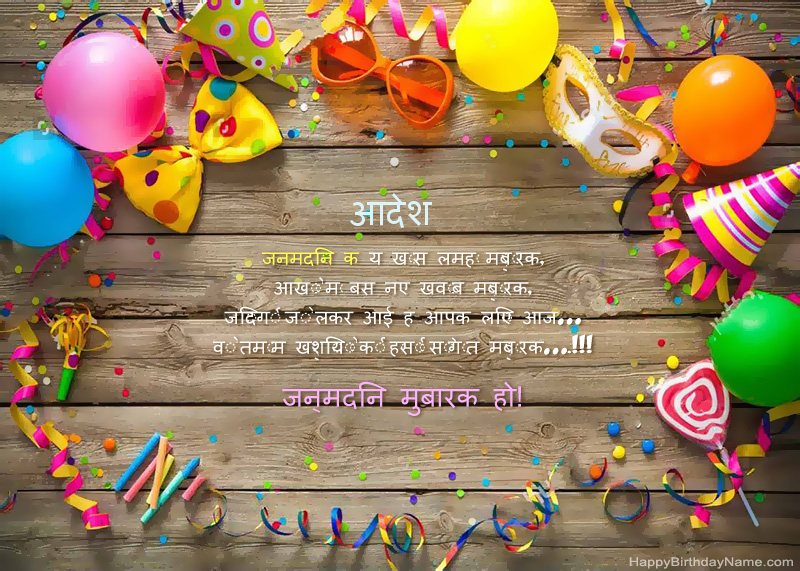 आदेश
जनमदनि क य खास लमहा मबारक,
आखों म बस नए खवाब मबारक,
जदिगी जो लकर आई ह आपक लएि आज...
वो तमाम खशयिों की हसीं सौगात मबारक...!!!
जन्मदनि मुबारक हो!
HappyBirthdayName.com